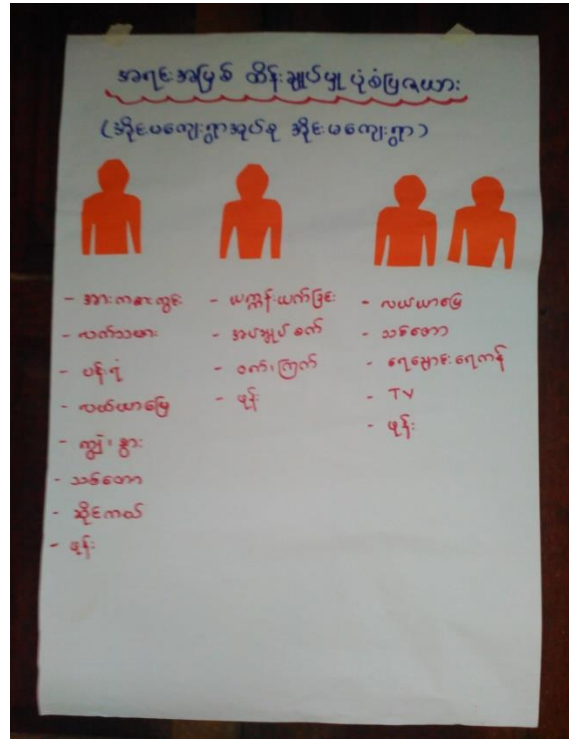 အရင်းအမြစ် ထိန်းချုပ်မှု ပုံစံပြဇယား
(အိုင်းမကျေးရွာအုပ်စု အိုင်းမကျေးရွာ)
- အားကစားကွင်း
- လက်သမား
- ပန်းရံ
- လယ်ယာမြေ
- ကျွဲ၊ နွား
- သစ်တော
- ဆိုင်ကယ်
- ဖုန်း
- ယက္ကန်းယက်ခြင်း
- အပ်ချုပ်စက်
- ဝက်၊ ကြက်
- ဖုန်း
- လယ်ယာမြေ
- သစ်တော
- ရေမြောင်းရေကန်
- TV
- ဖုန်း